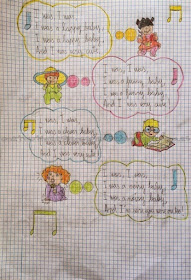 I was, I was,
I was a happy baby,
I was a happy baby,
And I was very cute!
I was, I was,
I was a funny baby,
I was a funny baby,
And I was very cute
I was, I was,
I was a clever baby,
I was a clever baby,
And I was very cute!
I was, I was,
I was a noisy baby,
I was a noisy baby,
And I was very cute!